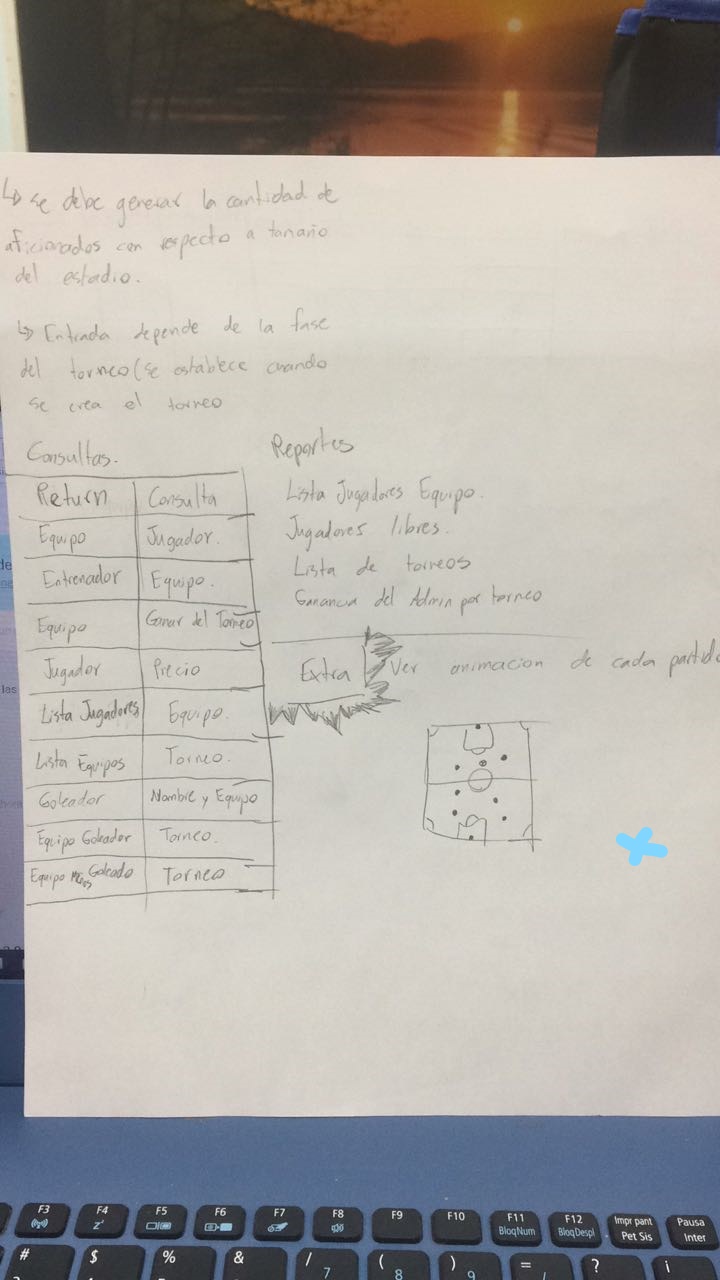 ↳ se debe generar la cantidad de
aficionados con respecto a tamaño
del estadio.
↳ Entrada depende de la fase
del torneo (se establece cuando
se crea el torneo
Consultas.
Return Consulta
Equipo Jugador.
Entrenador Equipo.
Equipo Ganar del Torneo
Jugador Precio
Lista Jugadores Equipo.
Lista Equipos Torneo.
Goleador Nombre y Equipo
Equipo Goleador Torneo.
Equipo Menos Goleado Torneo
Reportes
Lista Jugadores Equipo.
Jugadores libres.
Lista de torneos
Ganancia del Admin por torneo
Extra Ver animacion de cada partido
F3 F4 F5 F6 F7 F8 F9 F10 F11 F12 Impr pant Pausa
BloqNum BloqDespl Pet Sis Inter
# $ % & / ( ) = ? ¡
7 8 9